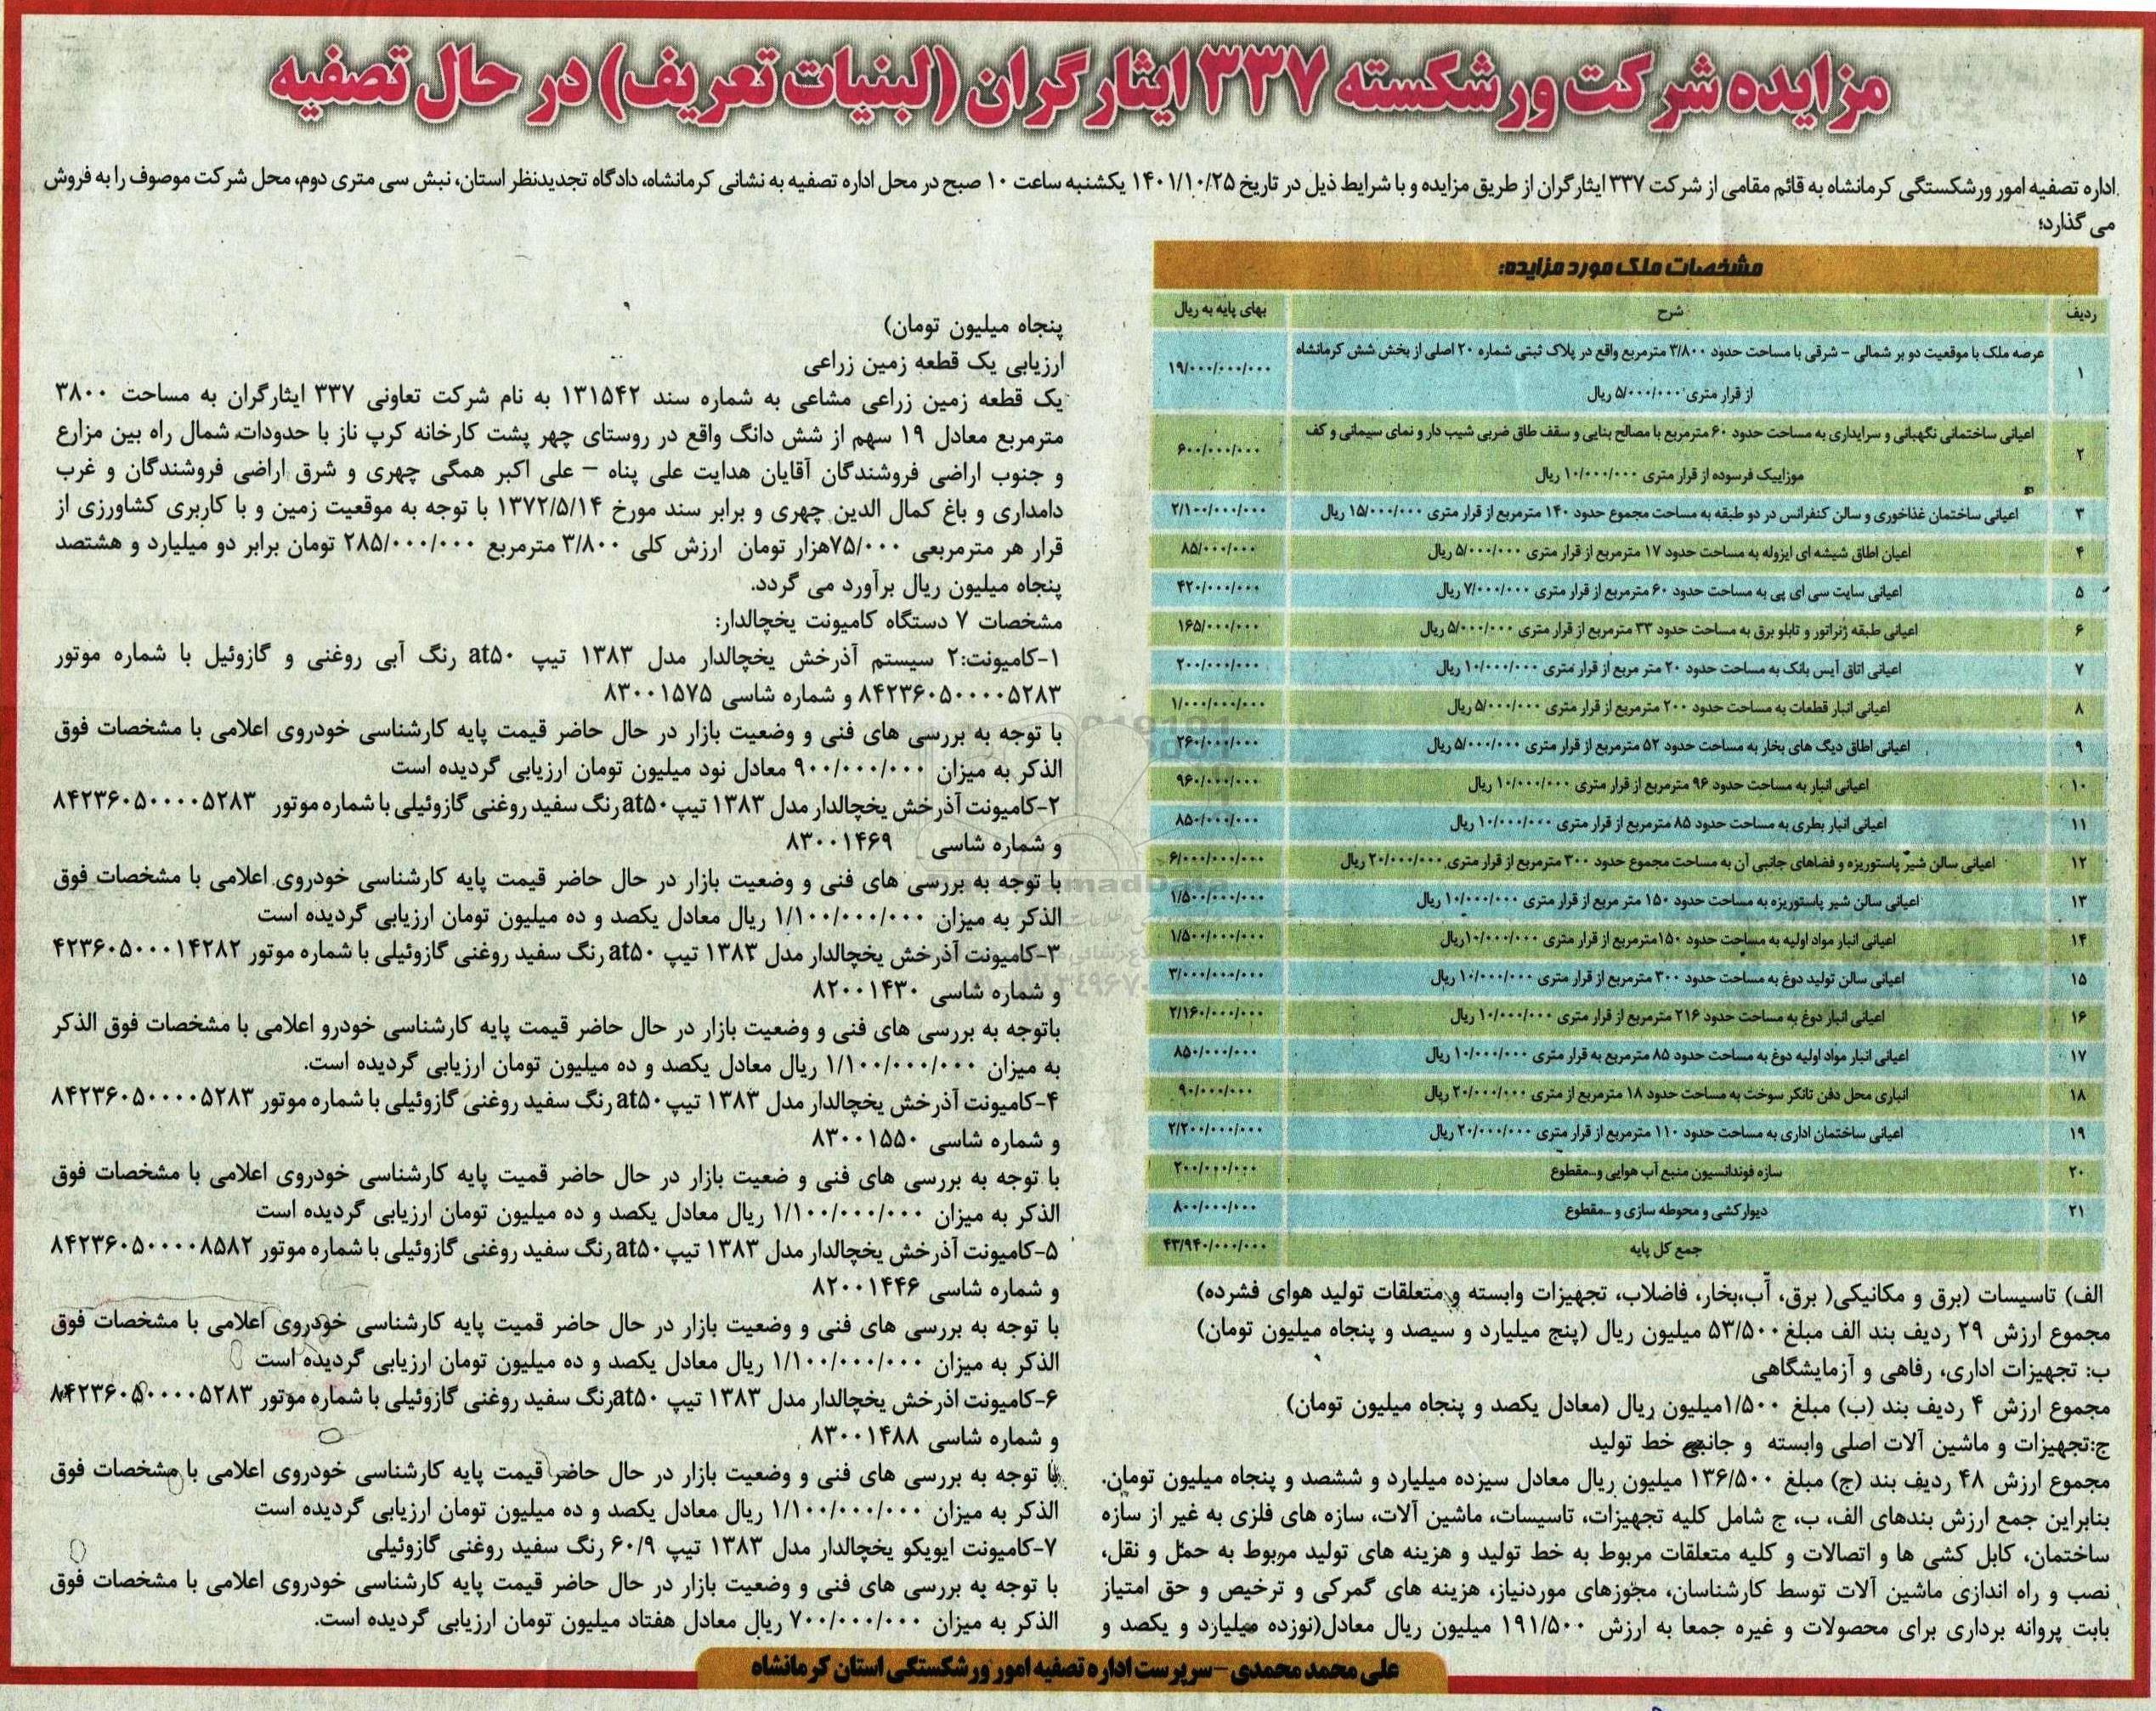 مزایده شرکت ورشکسته ۳۳۷ ایثارگران (لبنیات تعریف) در حال تصفیه
اداره تصفیه امور ورشکستگی کرمانشاه به قائم مقامی از شرکت ۳۳۷ ایثارگران از طریق مزایده و با شرایط ذیل در تاریخ ۱۴۰۱/۱۰/۲۵ یکشنبه ساعت ۱۰ صبح در محل اداره تصفیه به نشانی کرمانشاه، دادگاه تجدیدنظر استان، نبش سی متری دوم، محل شرکت موصوف را به فروش
می گذارد؛
مشخصات ملک مورد مزایده:
ردیف شرح بهای پایه به ریال
۱ عرصه ملک با موقعیت دو بر شمالی - شرقی با مساحت حدود ۳/۸۰۰ مترمربع واقع در پلاک ثبتی شماره ۲۰ اصلی از بخش شش کرمانشاه ۱۹/۰۰۰/۰۰۰/۰۰۰
از قرار متری ۵/۰۰۰/۰۰۰ ریال
۲ اعیانی ساختمانی نگهبانی و سرایداری به مساحت حدود ۶۰ مترمربع با مصالح بنایی و سقف طاق ضربی شیب دار و نمای سیمانی و کف ۶۰۰/۰۰۰/۰۰۰
موزاییک فرسوده از قرار متری ۱۰/۰۰۰/۰۰۰ ریال
۳ اعیانی ساختمان غذاخوری و سالن کنفرانس در دو طبقه به مساحت مجموع حدود ۱۴۰ مترمربع از قرار متری ۱۵/۰۰۰/۰۰۰ ریال ۲/۱۰۰/۰۰۰/۰۰۰
۴ اعیان اطاق شیشه ای ایزوله به مساحت حدود ۱۷ مترمربع از قرار متری ۵/۰۰۰/۰۰۰ ریال ۸۵/۰۰۰/۰۰۰
۵ اعیانی سایت سی ای پی به مساحت حدود ۶۰ مترمربع از قرار متری ۷/۰۰۰/۰۰۰ ریال ۴۲۰/۰۰۰/۰۰۰
۶ اعیانی طبقه ژنراتور و تابلو برق به مساحت حدود ۳۳ مترمربع از قرار متری ۵/۰۰۰/۰۰۰ ریال ۱۶۵/۰۰۰/۰۰۰
۷ اعیانی اتاق آیس بانک به مساحت حدود ۲۰ متر مربع از قرار متری ۱۰/۰۰۰/۰۰۰ ریال ۲۰۰/۰۰۰/۰۰۰
۸ اعیانی انبار قطعات به مساحت حدود ۲۰۰ مترمربع از قرار متری ۵/۰۰۰/۰۰۰ ریال ۱/۰۰۰/۰۰۰/۰۰۰
۹ اعیانی اطاق دیگ های بخار به مساحت حدود ۵۲ مترمربع از قرار متری ۵/۰۰۰/۰۰۰ ریال ۲۶۰/۰۰۰/۰۰۰
۱۰ اعیانی انبار به مساحت حدود ۹۶ مترمربع از قرار متری ۱۰/۰۰۰/۰۰۰ ریال ۹۶۰/۰۰۰/۰۰۰
۱۱ اعیانی انبار بطری به مساحت حدود ۸۵ مترمربع از قرار متری ۱۰/۰۰۰/۰۰۰ ریال ۸۵۰/۰۰۰/۰۰۰
۱۲ اعیانی سالن شیر پاستوریزه و فضاهای جانبی آن به مساحت مجموع حدود ۳۰۰ مترمربع از قرار متری ۲۰/۰۰۰/۰۰۰ ریال ۶/۰۰۰/۰۰۰/۰۰۰
۱۳ اعیانی سالن شیر پاستوریزه به مساحت حدود ۱۵۰ متر مربع از قرار متری ۱۰/۰۰۰/۰۰۰ ریال ۱/۵۰۰/۰۰۰/۰۰۰
۱۴ اعیانی انبار مواد اولیه به مساحت حدود ۱۵۰مترمربع از قرار متری ۱۰/۰۰۰/۰۰۰ریال ۱/۵۰۰/۰۰۰/۰۰۰
۱۵ اعیانی سالن تولید دوغ به مساحت حدود ۳۰۰ مترمربع از قرار متری ۱۰/۰۰۰/۰۰۰ ریال ۳/۰۰۰/۰۰۰/۰۰۰
۱۶ اعیانی انبار دوغ به مساحت حدود ۲۱۶ مترمربع از قرار متری ۱۰/۰۰۰/۰۰۰ ریال ۲/۱۶۰/۰۰۰/۰۰۰
۱۷ اعیانی انبار مواد اولیه دوغ به مساحت حدود ۸۵ مترمربع به قرار متری ۱۰/۰۰۰/۰۰۰ ریال ۸۵۰/۰۰۰/۰۰۰
۱۸ انباری محل دفن تانکر سوخت به مساحت حدود ۱۸ مترمربع از متری ۲۰/۰۰۰/۰۰۰ ریال ۹۰/۰۰۰/۰۰۰
۱۹ اعیانی ساختمان اداری به مساحت حدود ۱۱۰ مترمربع از قرار متری ۲۰/۰۰۰/۰۰۰ ریال ۲/۲۰۰/۰۰۰/۰۰۰
۲۰ سازه فوندانسیون منبع آب هوایی و...مقطوع ۲۰۰/۰۰۰/۰۰۰
۲۱ دیوارکشی و محوطه سازی و ...مقطوع ۸۰۰/۰۰۰/۰۰۰
جمع کل پایه ۴۳/۹۴۰/۰۰۰/۰۰۰
الف) تاسیسات (برق و مکانیکی( برق، آب،بخار، فاضلاب، تجهیزات وابسته و متعلقات تولید هوای فشرده)
مجموع ارزش ۲۹ ردیف بند الف مبلغ ۵۳/۵۰۰ میلیون ریال (پنج میلیارد و سیصد و پنجاه میلیون تومان)
ب: تجهیزات اداری، رفاهی و آزمایشگاهی
مجموع ارزش ۴ ردیف بند (ب) مبلغ ۱/۵۰۰میلیون ریال (معادل یکصد و پنجاه میلیون تومان)
ج:تجهیزات و ماشین آلات اصلی وابسته و جانبی خط تولید
مجموع ارزش ۴۸ ردیف بند (ج) مبلغ ۱۳۶/۵۰۰ میلیون ریال معادل سیزده میلیارد و ششصد و پنجاه میلیون تومان.
بنابراین جمع ارزش بندهای الف، ب، ج شامل کلیه تجهیزات، تاسیسات، ماشین آلات، سازه های فلزی به غیر از سازه
ساختمان، کابل کشی ها و اتصالات و کلیه متعلقات مربوط به خط تولید و هزینه های تولید مربوط به حمل و نقل،
نصب و راه اندازی ماشین آلات توسط کارشناسان، مجوزهای موردنیاز، هزینه های گمرکی و ترخیص و حق امتیاز
بابت پروانه برداری برای محصولات و غیره جمعا به ارزش ۱۹۱/۵۰۰ میلیون ریال معادل(نوزده میلیارد و یکصد و
پنجاه میلیون تومان)
ارزیابی یک قطعه زمین زراعی
یک قطعه زمین زراعی مشاعی به شماره سند ۱۳۱۵۴۲ به نام شرکت تعاونی ۳۳۷ ایثارگران به مساحت ۳۸۰۰
مترمربع معادل ۱۹ سهم از شش دانگ واقع در روستای چهر پشت کارخانه کرپ ناز با حدودات شمال راه بین مزارع
و جنوب اراضی فروشندگان آقایان هدایت علی پناه – علی اکبر همگی چهری و شرق اراضی فروشندگان و غرب
دامداری و باغ کمال الدین چهری و برابر سند مورخ ۱۳۷۲/۵/۱۴ با توجه به موقعیت زمین و با کاربری کشاورزی از
قرار هر مترمربعی ۷۵/۰۰۰هزار تومان ارزش کلی ۳/۸۰۰ مترمربع ۲۸۵/۰۰۰/۰۰۰ تومان برابر دو میلیارد و هشتصد
پنجاه میلیون ریال برآورد می گردد.
مشخصات ۷ دستگاه کامیونت یخچالدار:
۱-کامیونت:۲ سیستم آذرخش یخچالدار مدل ۱۳۸۳ تیپ at۵۰ رنگ آبی روغنی و گازوئیل با شماره موتور
۸۴۲۳۶۰۵۰۰۰۰۵۲۸۳ و شماره شاسی ۸۳۰۰۱۵۷۵
با توجه به بررسی های فنی و وضعیت بازار در حال حاضر قیمت پایه کارشناسی خودروی اعلامی با مشخصات فوق
الذکر به میزان ۹۰۰/۰۰۰/۰۰۰ معادل نود میلیون تومان ارزیابی گردیده است
۲-کامیونت آذرخش یخچالدار مدل ۱۳۸۳ تیپ at۵۰رنگ سفید روغنی گازوئیلی با شماره موتور ۸۴۲۳۶۰۵۰۰۰۰۵۲۸۳
و شماره شاسی ۸۳۰۰۱۴۶۹
با توجه به بررسی های فنی و وضعیت بازار در حال حاضر قیمت پایه کارشناسی خودروی اعلامی با مشخصات فوق
الذکر به میزان ۱/۱۰۰/۰۰۰/۰۰۰ ریال معادل یکصد و ده میلیون تومان ارزیابی گردیده است
۳-کامیونت آذرخش یخچالدار مدل ۱۳۸۳ تیپ at۵۰ رنگ سفید روغنی گازوئیلی با شماره موتور ۴۲۳۶۰۵۰۰۰۱۴۲۸۲
و شماره شاسی ۸۲۰۰۱۴۳۰
باتوجه به بررسی های فنی و وضعیت بازار در حال حاضر قیمت پایه کارشناسی خودرو اعلامی با مشخصات فوق الذکر
به میزان ۱/۱۰۰/۰۰۰/۰۰۰ ریال معادل یکصد و ده میلیون تومان ارزیابی گردیده است.
۴-کامیونت آذرخش یخچالدار مدل ۱۳۸۳ تیپ at۵۰ رنگ سفید روغنی گازوئیلی با شماره موتور ۸۴۲۳۶۰۵۰۰۰۰۵۲۸۳
و شماره شاسی ۸۳۰۰۱۵۵۰
با توجه به بررسی های فنی و ضعیت بازار در حال حاضر قمیت پایه کارشناسی خودروی اعلامی با مشخصات فوق
الذکر به میزان ۱/۱۰۰/۰۰۰/۰۰۰ ریال معادل یکصد و ده میلیون تومان ارزیابی گردیده است
۵-کامیونت آذرخش یخچالدار مدل ۱۳۸۳ تیپ at۵۰ رنگ سفید روغنی گازوئیلی با شماره موتور ۸۴۲۳۶۰۵۰۰۰۰۸۵۸۲
و شماره شاسی ۸۲۰۰۱۴۴۶
با توجه به بررسی های فنی و وضعیت بازار در حال حاضر قمیت پایه کارشناسی خودروی اعلامی با مشخصات فوق
الذکر به میزان ۱/۱۰۰/۰۰۰/۰۰۰ ریال معادل یکصد و ده میلیون تومان ارزیابی گردیده است
۶-کامیونت اذرخش یخچالدار مدل ۱۳۸۳ تیپ at۵۰رنگ سفید روغنی گازوئیلی با شماره موتور ۸۴۲۳۶۰۵۰۰۰۰۵۲۸۳
و شماره شاسی ۸۳۰۰۱۴۸۸
با توجه به بررسی های فنی و وضعیت بازار در حال حاضر قیمت پایه کارشناسی خودروی اعلامی با مشخصات فوق
الذکر به میزان ۱/۱۰۰/۰۰۰/۰۰۰ ریال معادل یکصد و ده میلیون تومان ارزیابی گردیده است
۷-کامیونت ایویکو یخچالدار مدل ۱۳۸۳ تیپ ۶۰/۹ رنگ سفید روغنی گازوئیلی
با توجه به بررسی های فنی و وضعیت بازار در حال حاضر قیمت پایه کارشناسی خودروی اعلامی با مشخصات فوق
الذکر به میزان ۷۰۰/۰۰۰/۰۰۰ ریال معادل هفتاد میلیون تومان ارزیابی گردیده است.
علی محمد محمدی -سرپرست اداره تصفیه امور ورشکستگی استان کرمانشاه